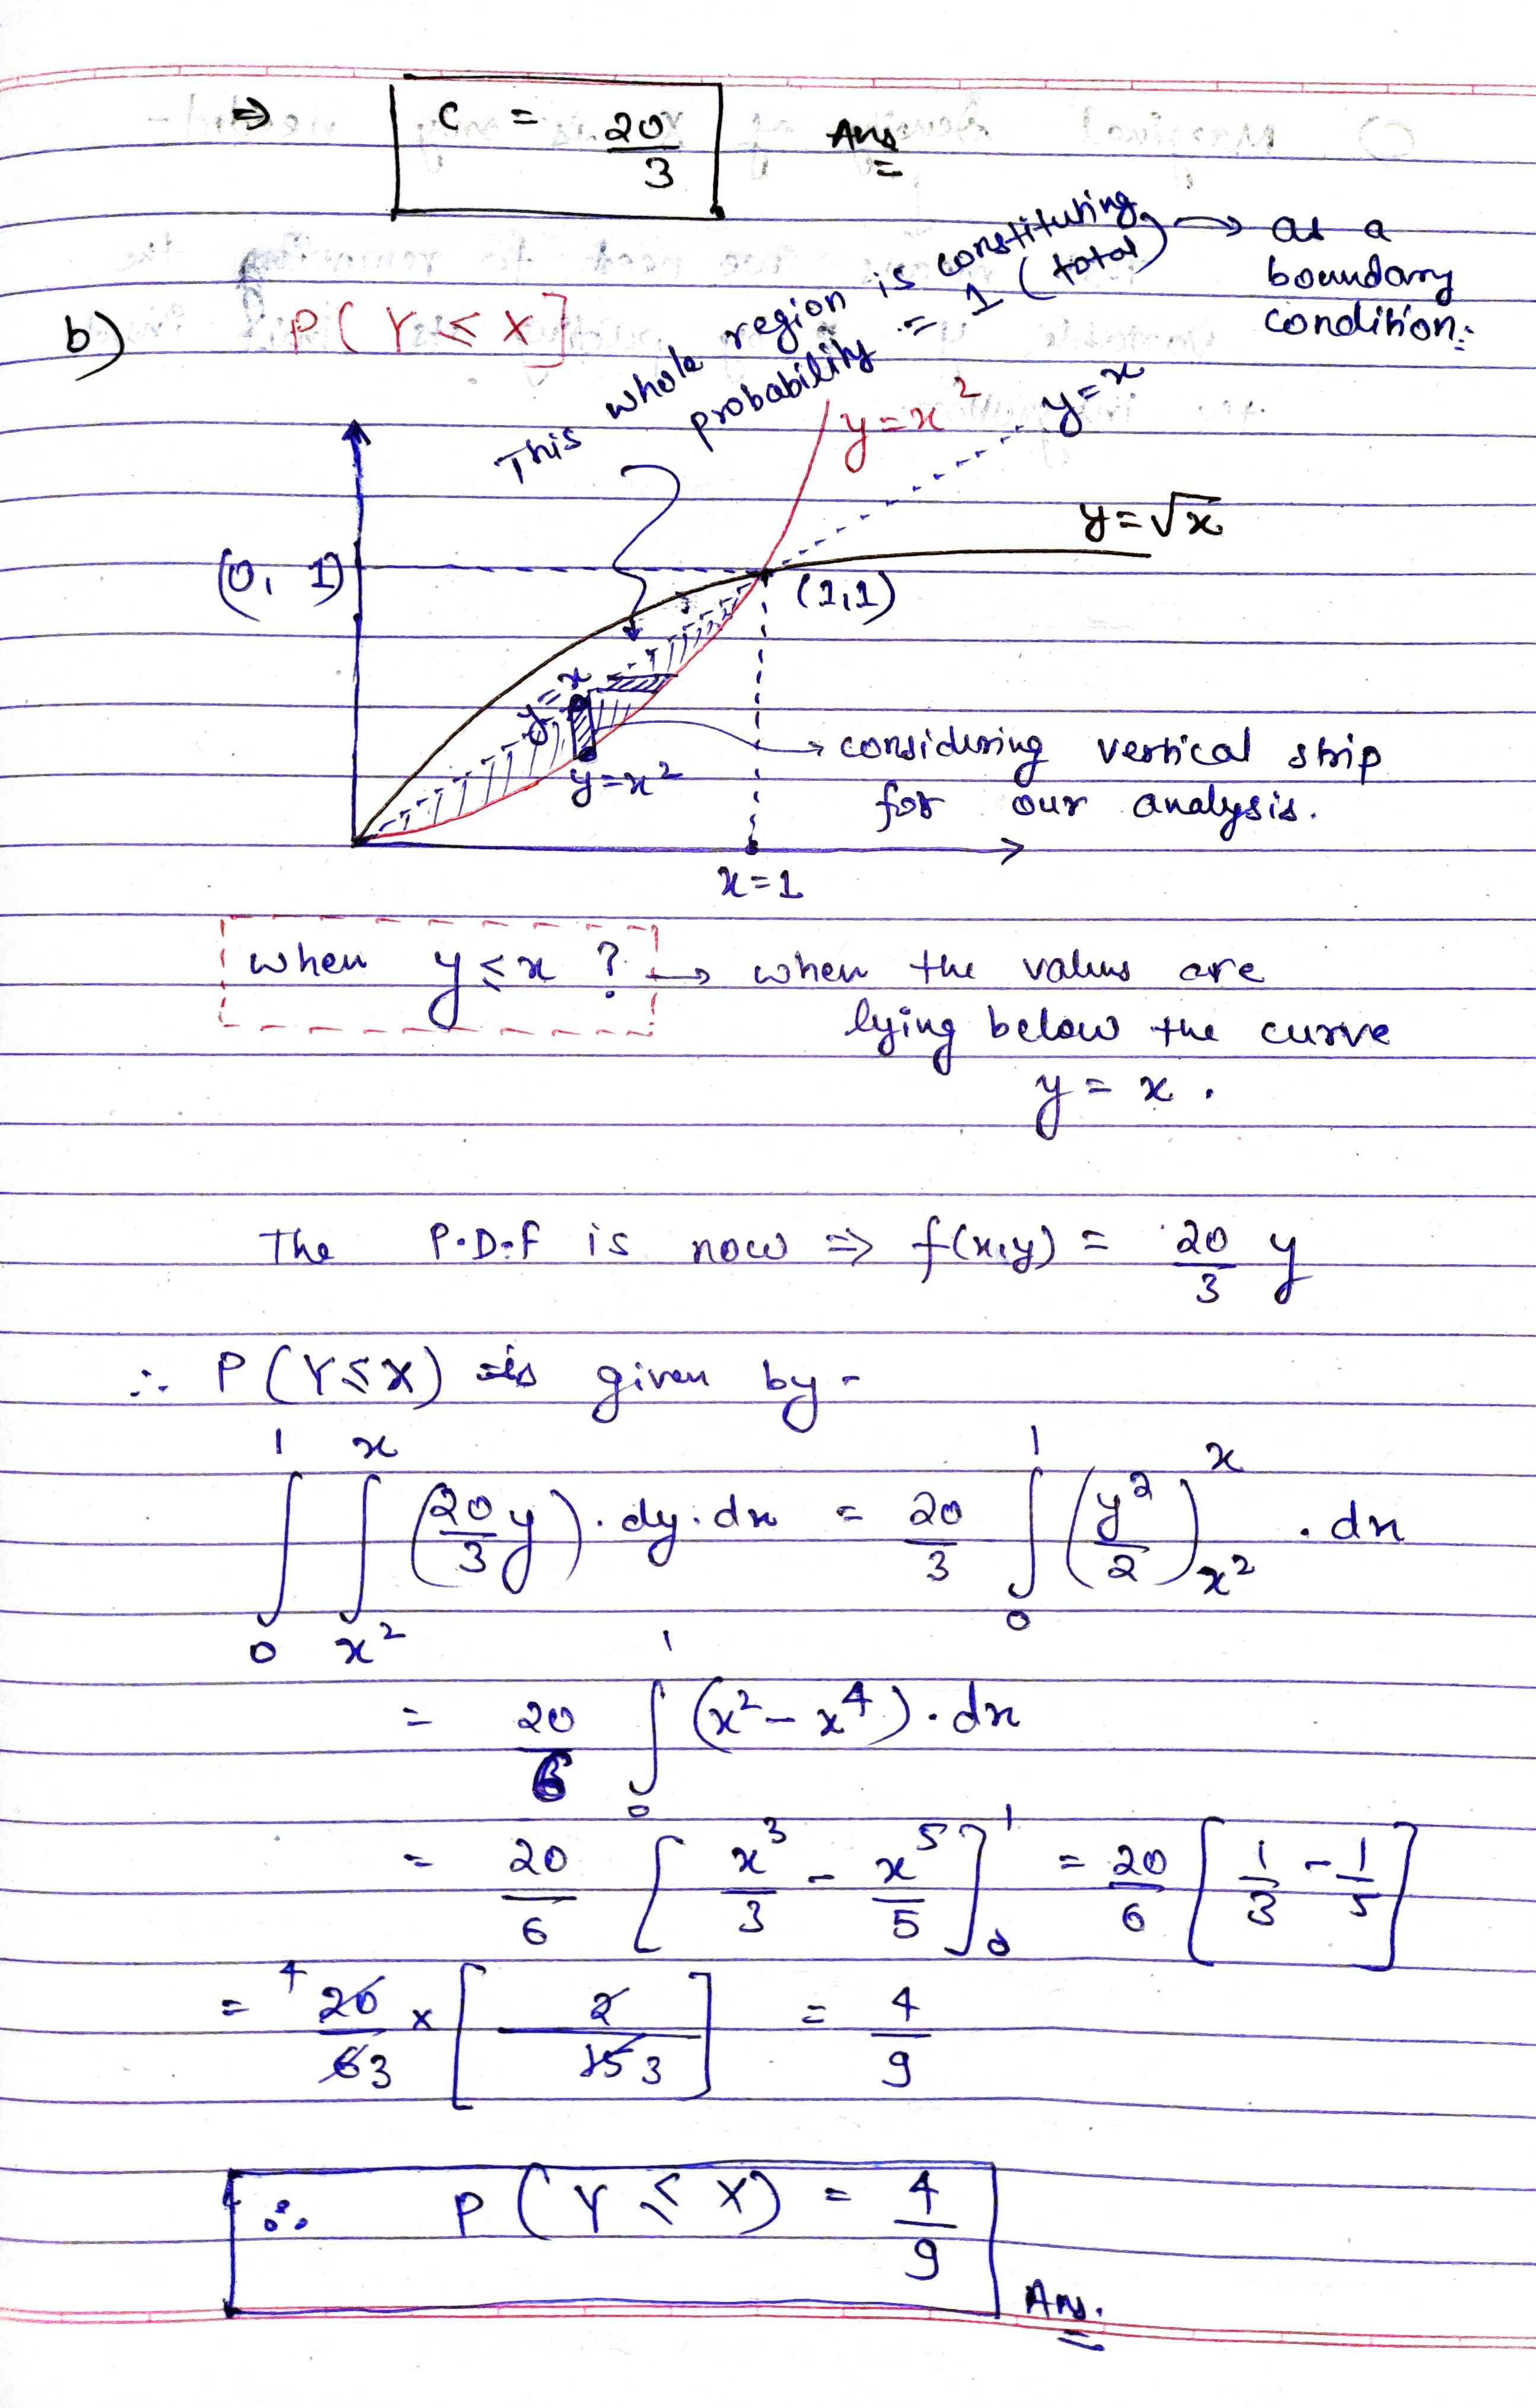 ⇒ C = 20/3 Ans
b) P(Y ≤ X]
This whole region is constituting
probability = 1 (total)
→ as a
boundary
condition:
y=x²
y=x
y=√x
(0, 1)
(1,1)
y=x
y=x²
→ considering vertical strip
for our analysis.
x=1
when y≤x ? → when the values are
lying below the curve
y = x .
The P.D.F is now ⇒ f(x,y) = 20/3 y
∴ P(Y≤X) is given by -
∫₀¹ ∫_{x²}^{x} (20/3 y) . dy . dx = 20/3 ∫₀¹ (y²/2)_{x²}^{x} . dx
= 20/6 ∫₀¹ (x² - x⁴) . dx
= 20/6 [x³/3 - x⁵/5]₀¹ = 20/6 [1/3 - 1/5]
= 4 20/6 3 × [2/15 3] = 4/9
∴ P(Y ≤ X) = 4/9
Ans.